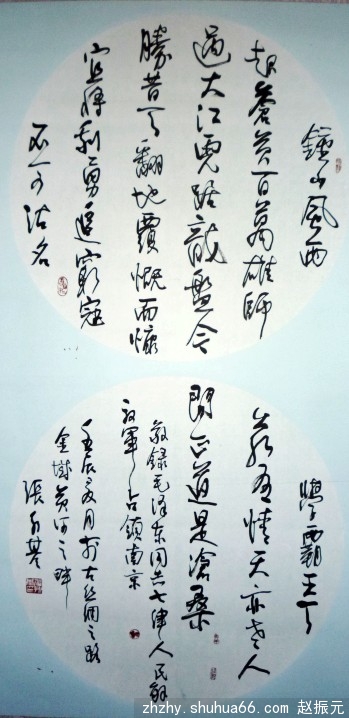 鍾山風雨
起蒼黃百萬雄師
過大江虎踞龍盤今
勝昔天翻地覆慨而慷
宜將剩勇追窮寇
不可沽名
學霸王天
若有情天亦老人
間正道是滄桑
敬錄毛澤东同志七律人民解
放軍占領南京
壬辰夏月於古丝綢之路
金城黄河之畔
張
zhzhy.shuhua66.com 赵振元